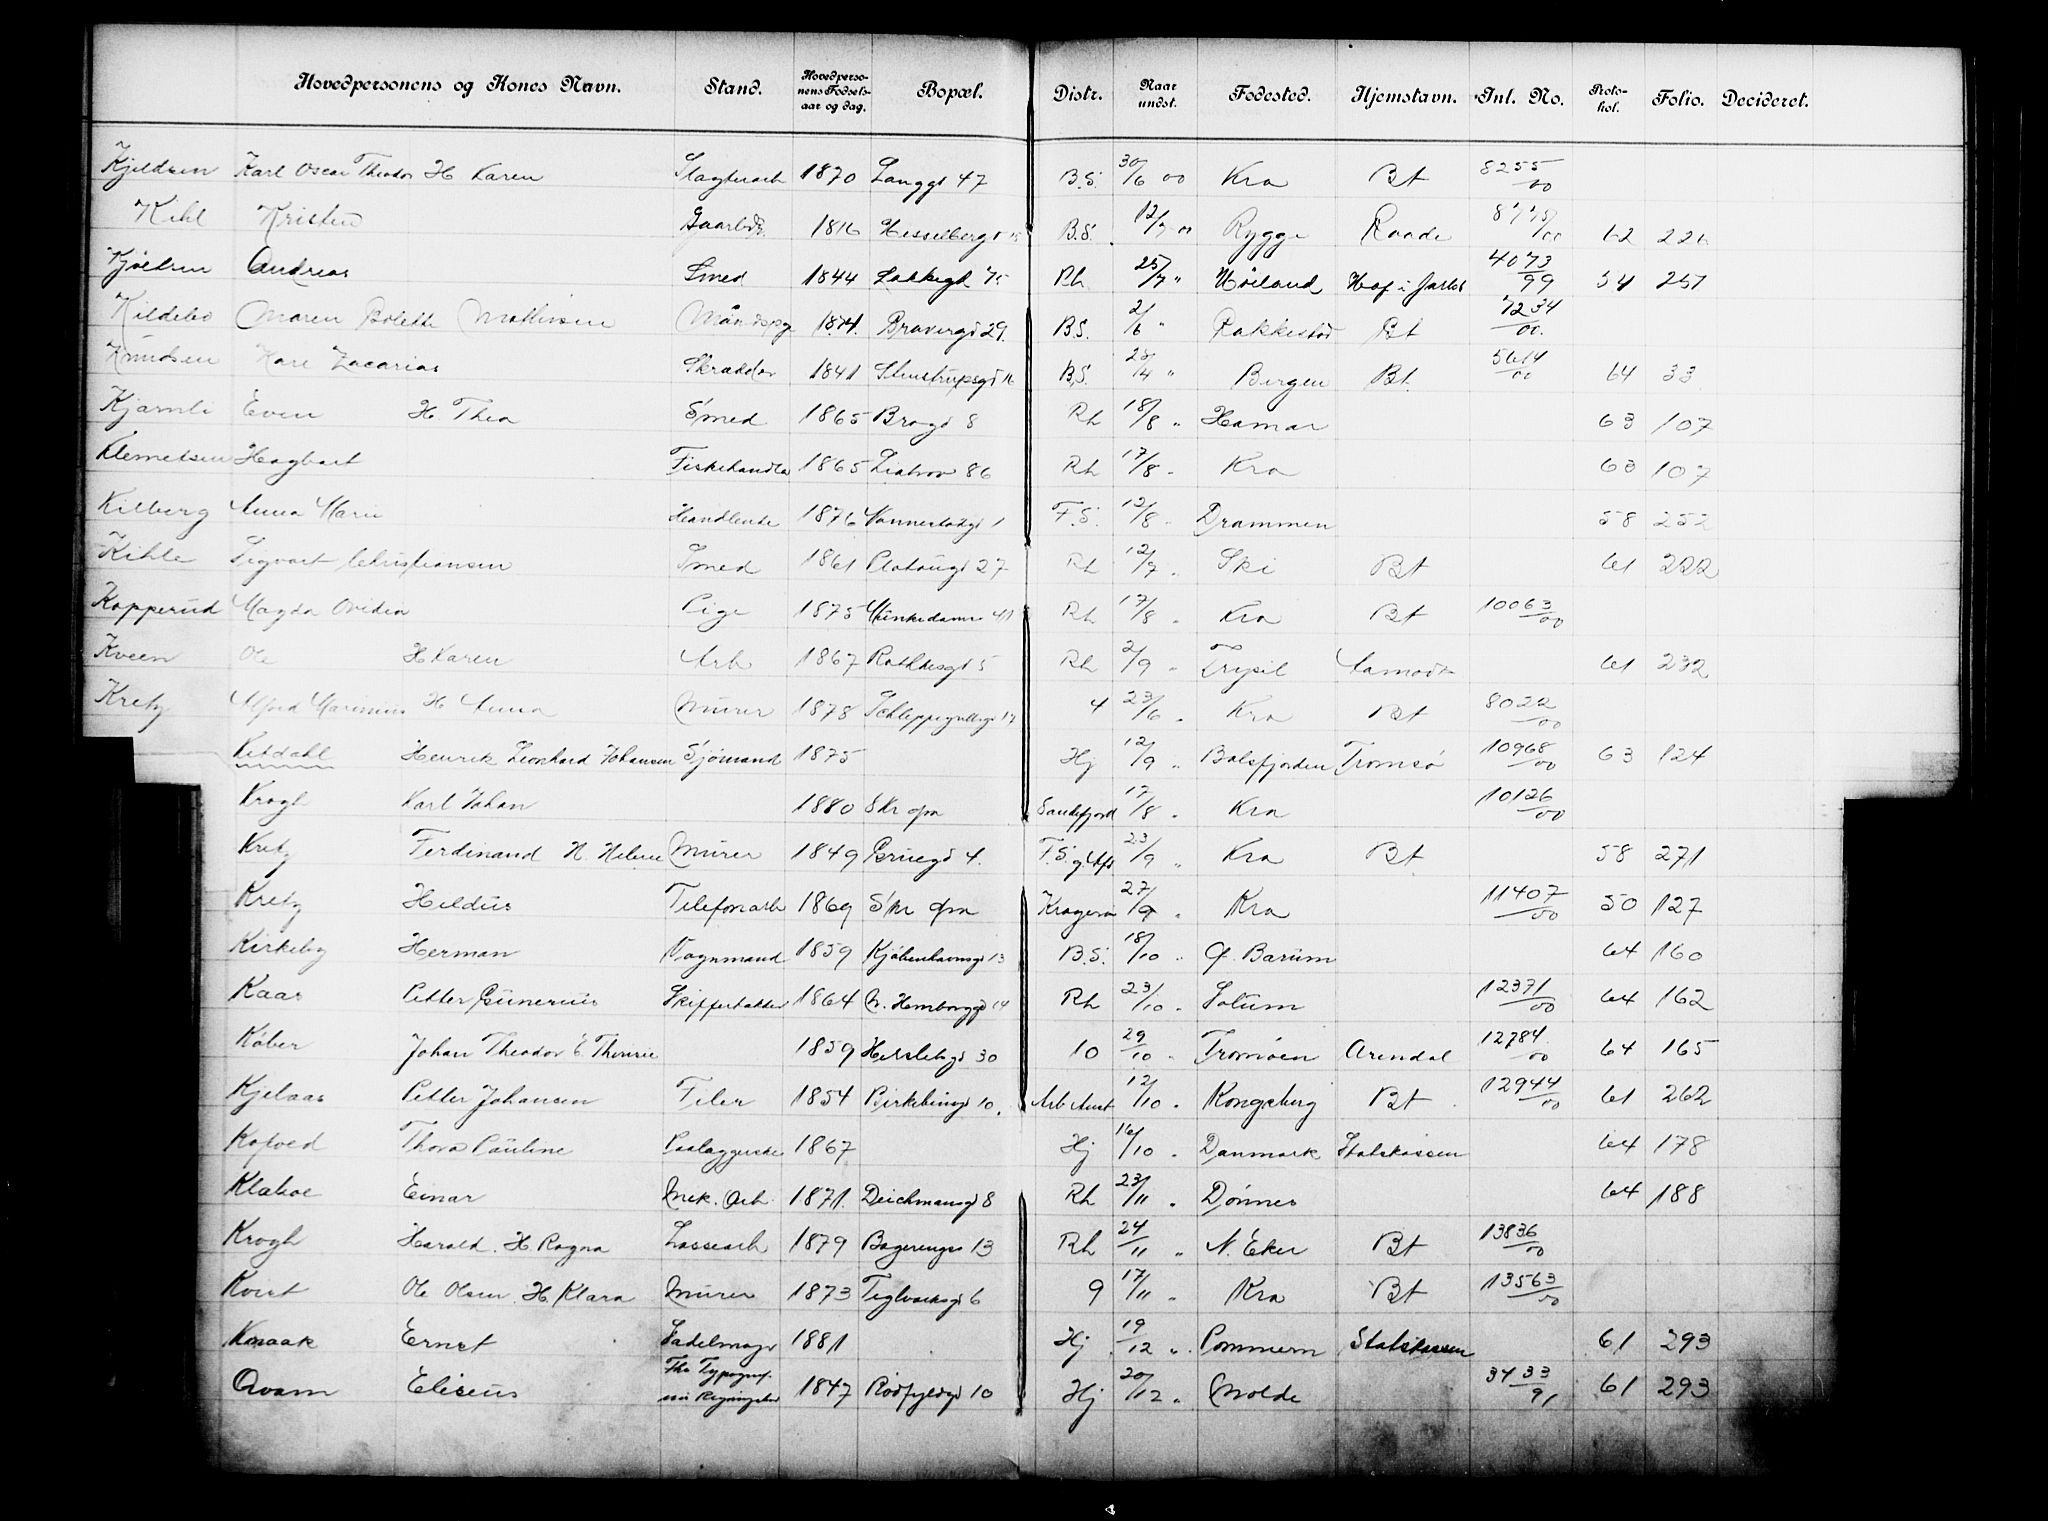 Hovedpersonens og Kones Navn. Stand. Hovedpersonens Fødselsaar og dag. Bopæl. Distr. Naar undst. Fødested. Hjemstavn. Inl. No. Protokol. Folio. Decideret.
Kjeldsen Karl Oscar Theodor H Karen Slagterarb 1870 Langgd 47 B.S. 30/6 00 Kra Bt 8255/00
Kihl Kristen Gaarbdr 1816 Hesselbergd 15 B.S. 12/7 00 Rygge Raade 8775/00 62 226
Kjølsen Andreas Smed 1844 Lakkegd 75 Rh 25/7 " Høiland Hof i Jarlsb 4073/99 54 251
Kildebo Maren Bolette Mathisen 1874. Bravergd 29. B.S. 2/6 " Rakkestad Bt 7234/00.
Knudsen Hare Zacarias Skrædder 1841 Stenstrupsgd 16 B.S. 28/4 " Bergen Bt. 5614/00 64 33
Kjærnli Even H. Thea Smed 1865 Brogd 8 Rh 18/8 " Hamar 63 107
Klemetsen Hagbart Fiskehandler 1865 86 Rh 17/8 " Kra 63 107
Kilberg Anna Marie Handlende 1876 Vannerstadgd 1 F.S. 12/8 " Drammen 58 252
Kihle Sigvart Christiansen Smed 1861 Platougd 27 Rh 12/7 " Ski Bt 61 222
Kopperud Magda Ovidea Pige 1875 Munkedams 41 Rh 17/8 " Kra Bt 10063/00
Kveen Ole H Karen Arb 1867 Rathkesgd 5 Rh 2/9 " Trysil Aamodt 61 232
Kretz Alfred Marinius H Anna Murer 1878 Schleppegrellsgd 17 4 23/6 " Kra Bt 8022/00
Kildahl Henrik Leonhard Johansen Sjømand 1875 Hj 12/9 " Balsfjorden Tromsø 10968/00 63 124
Krogh Karl Johan 1880 Skr opm Sandefjord 17/8 " Kra 10126/00
Kretz Ferdinand H. Helene Murer 1849 Bruegd 4. F.S. 23/9 " Kra Bt 58 271
Kretz Hildus Telefonarb 1869 Skr opm Kragerø 27/9 " Kra 11407/00 50 127
Kirkeby Herman Vognmand 1859 Kjøbenhavnsgd 13 B.S. 18/10 " Ø. Bærum 64 160
Kaas Petter Gunerius Skippertakker 1864 N. Hamborggd 14 Rh 23/10 " Solum 12371/00 64 162
Køber Johan Theodor E. Thinsie 1859 Helslebgd 30 10 29/10 " Tromøen Arendal 12784/00 64 165
Kjelaas Petter Johansen Filer 1854 Birkebeingd 10. Arb Anst 12/10 " Kongsberg Bt 12944/00 61 262
Kofoed Thora Pauline Paalæggerske 1867 Hj 16/10 " Danmark Statskassen 64 178
Klaboe Einar Mek. Arb. 1871. Deichmansgd 8 Rh 23/11 " Dønnes 64 188
Krogh Harald. H. Ragna Lossearb 1879 Bøgerengv 13 Rh 24/11 " N. Eker Bt 13836/00
Kvist Ole Olsen H. Klara Murer 1873 Teglverksgd 6 9 17/11 " Kra Bt 13563/00
Knaak Ernst Sadelmager 1881 Hj 19/12 " Pommern Statskassen 61 293
Qvam Eliseus Fhv Typograf. 1847 Rødfyldgd 10 Hj 20/12 " Molde 3433/91 61 293